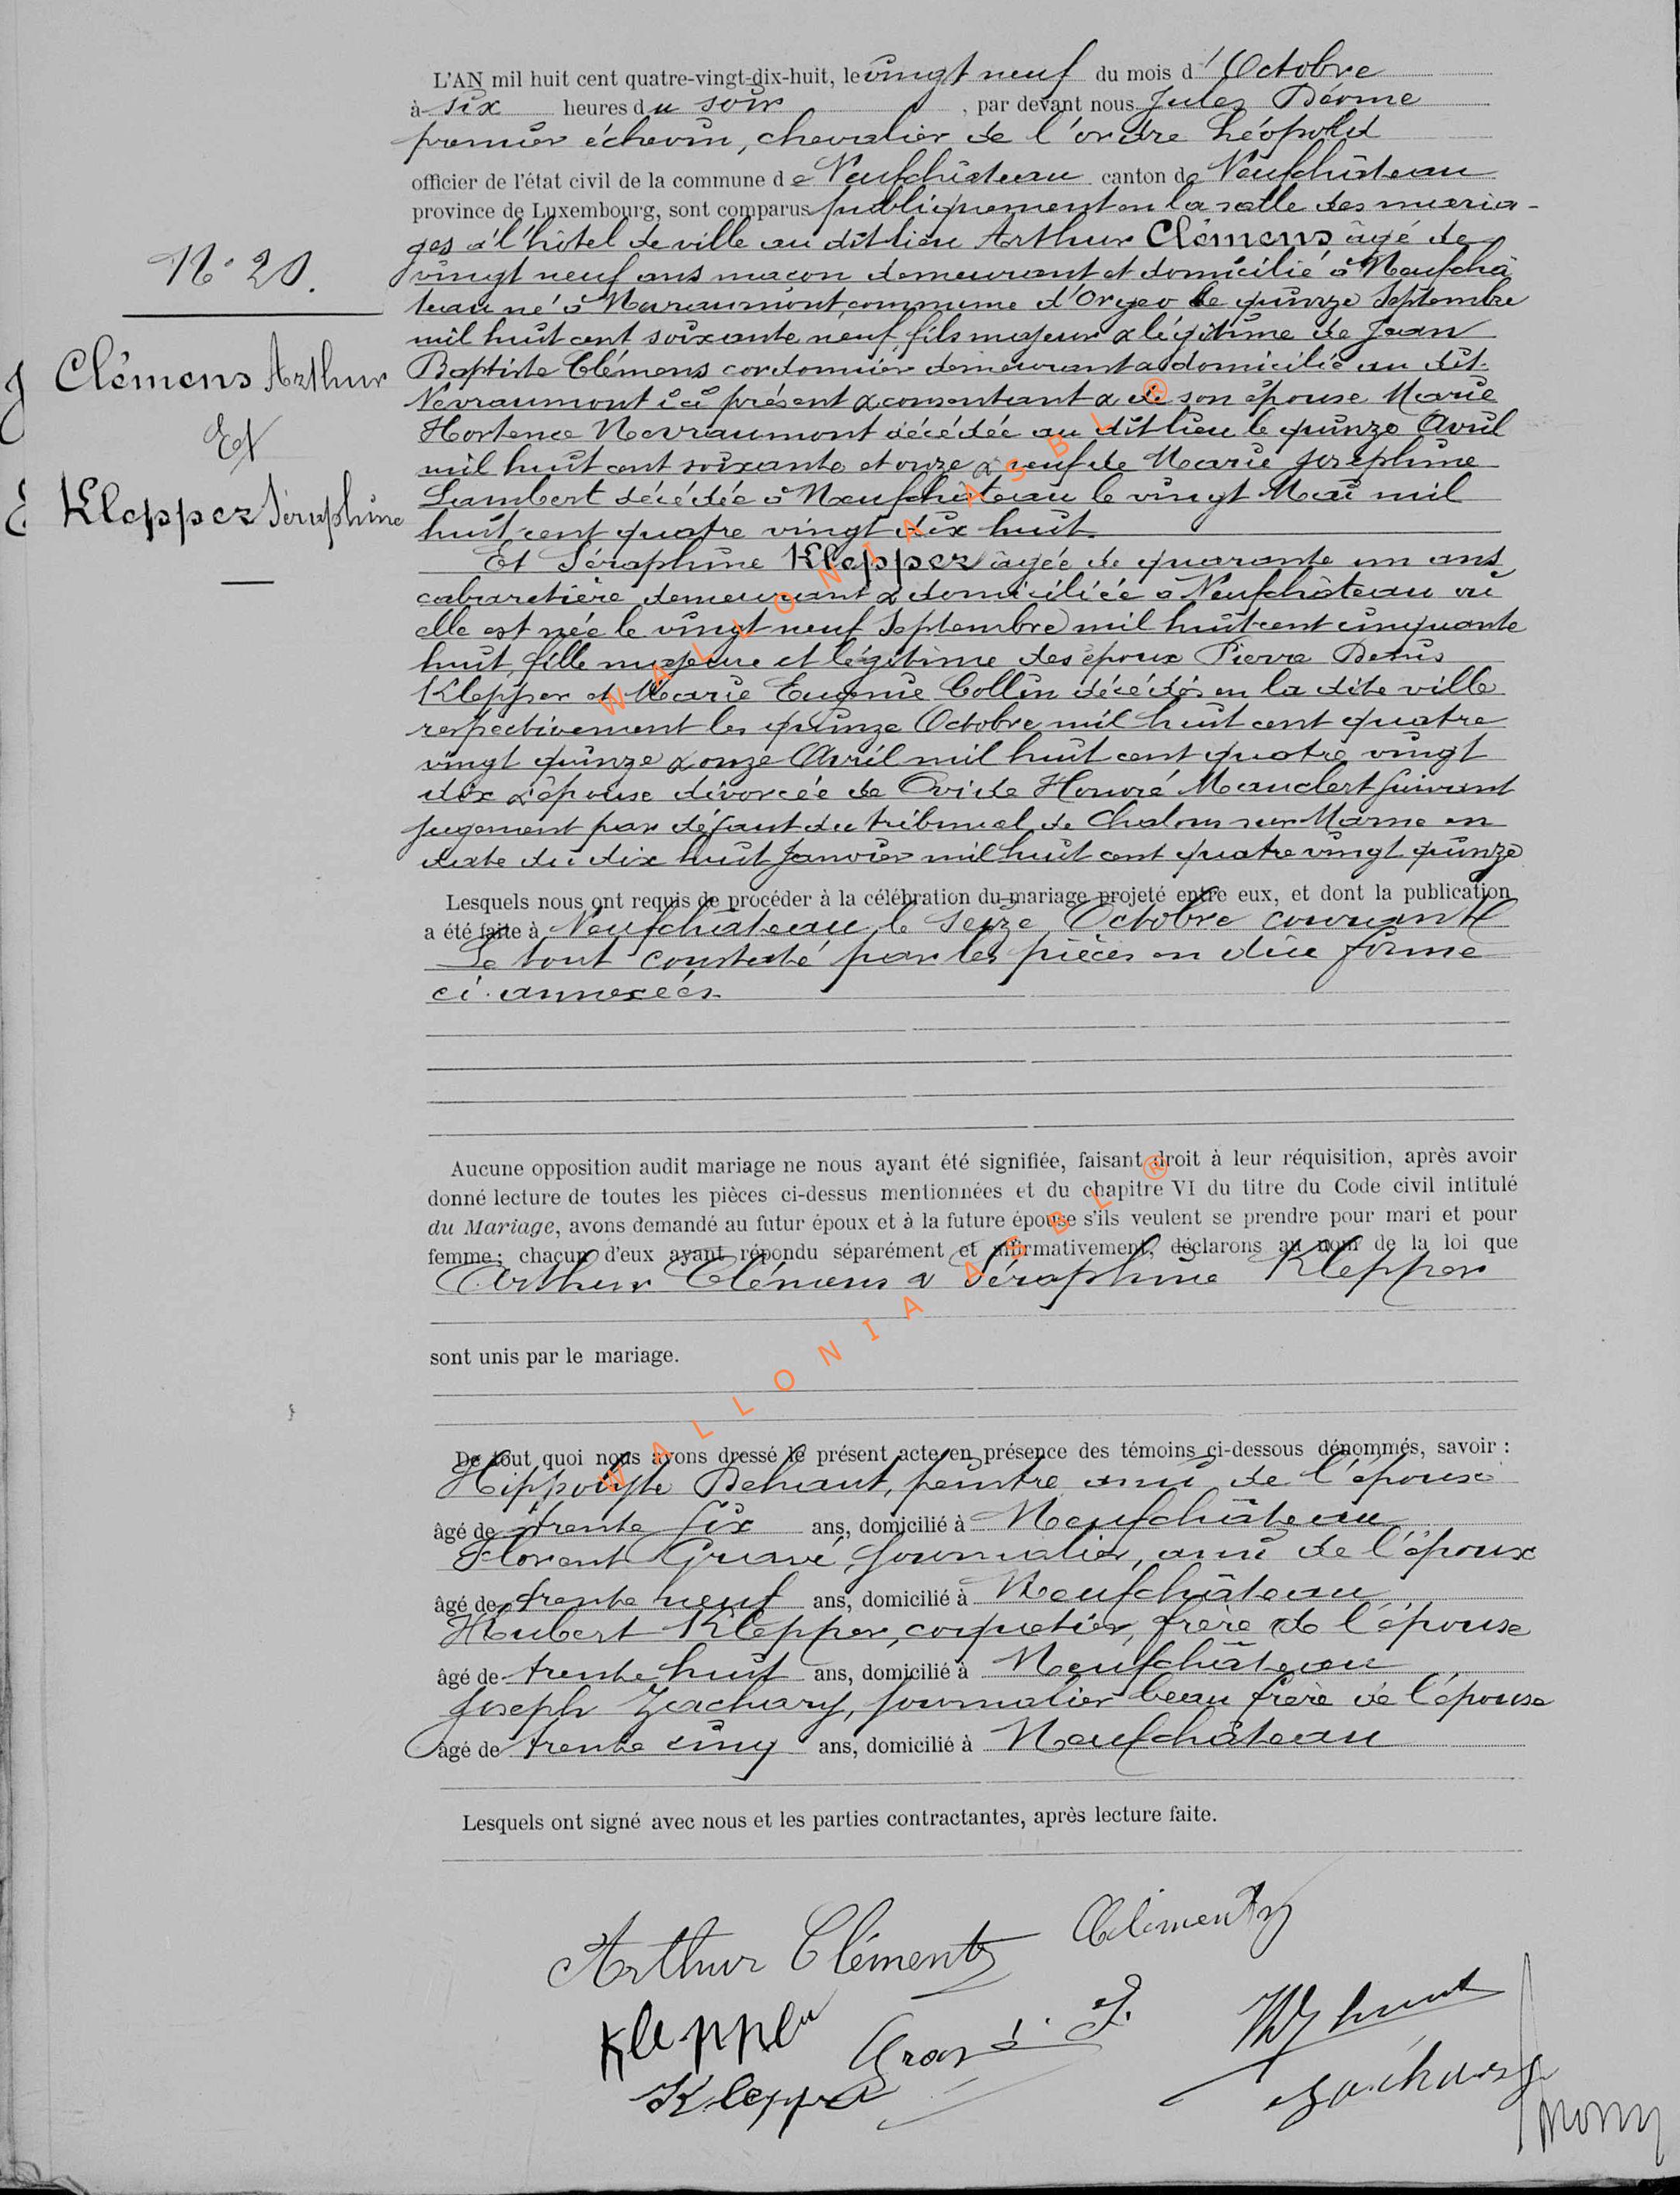 L'AN mil huit cent quatre-vingt-dix-huit, le vingt neuf du mois d'Octobre
à six heures du soir, par devant nous Jules Dérome
premier échevin, chevalier de l'ordre Léopold
officier de l'état civil de la commune de Neufchâteau canton de Neufchâteau
province de Luxembourg, sont comparus publiquement en la salle des maria-
ges à l'hôtel de ville au dit lieu Arthur Clémens âgé de
N° 20.
vingt neuf ans maçon demeurant et domicilié à Neufchâ
teau né à Nevraumont, commune d'Orgeo le quinze Septembre
mil huit cent soixante neuf, fils majeur & légitime de Jean
Clémens Arthur
Et
Klepper Séraphine
Baptiste Clémens cordonnier demeurant & domicilié au dit
Nevraumont ici présent & consentant & de son épouse Marie
Hortence Nevraumont décédée au dit lieu le quinze Avril
mil huit cent soixante et onze & veuf de Marie Joséphine
Lambert décédée à Neufchâteau le vingt Mai mil
huit cent quatre vingt dix huit.
Et Séraphine Klepper âgée de quarante un ans
cabaretière demeurant & domiciliée à Neufchâteau où
elle est née le vingt neuf Septembre mil huit cent cinquante
huit, fille majeure et légitime des époux Pierre Denis
Klepper et Marie Eugénie Collin décédés en la dite ville
respectivement les quinze Octobre mil huit cent quatre
vingt quinze & onze Avril mil huit cent quatre vingt
dix & épouse divorcée de Ovide Honoré Mauclert suivant
jugement par défaut du tribunal de Chalons sur Marne en
date du dix huit Janvier mil huit cent quatre vingt quinze
Lesquels nous ont requis de procéder à la célébration du mariage projeté entre eux, et dont la publication
a été faite à Neufchâteau le seize Octobre courant
Le tout constaté par les pièces en due forme
ci-annexées
Aucune opposition audit mariage ne nous ayant été signifiée, faisant droit à leur réquisition, après avoir
donné lecture de toutes les pièces ci-dessus mentionnées et du chapitre VI du titre du Code civil intitulé
du Mariage, avons demandé au futur époux et à la future épouse s'ils veulent se prendre pour mari et pour
femme; chacun d'eux ayant répondu séparément et affirmativement, déclarons au nom de la loi que
Arthur Clémens & Séraphine Klepper
sont unis par le mariage.
De tout quoi nous avons dressé le présent acte en présence des témoins ci-dessous dénommés, savoir :
Hippolyte Dehaut, peintre ami de l'époux
âgé de trente six ans, domicilié à Neufchâteau
Florent Gravé, journalier, ami de l'époux
âgé de trente neuf ans, domicilié à Neufchâteau
Hubert Klepper, coquetier, frère de l'épouse
âgé de trente huit ans, domicilié à Neufchâteau
Joseph Zachary, journalier beau frère de l'épouse
âgé de trente cinq ans, domicilié à Neufchâteau
Lesquels ont signé avec nous et les parties contractantes, après lecture faite.
Arthur Cléments Cléments
Klepper Gravé F.
Klepper Zachary
WALLONIA ASBL ®
WALLONIA ASBL ®